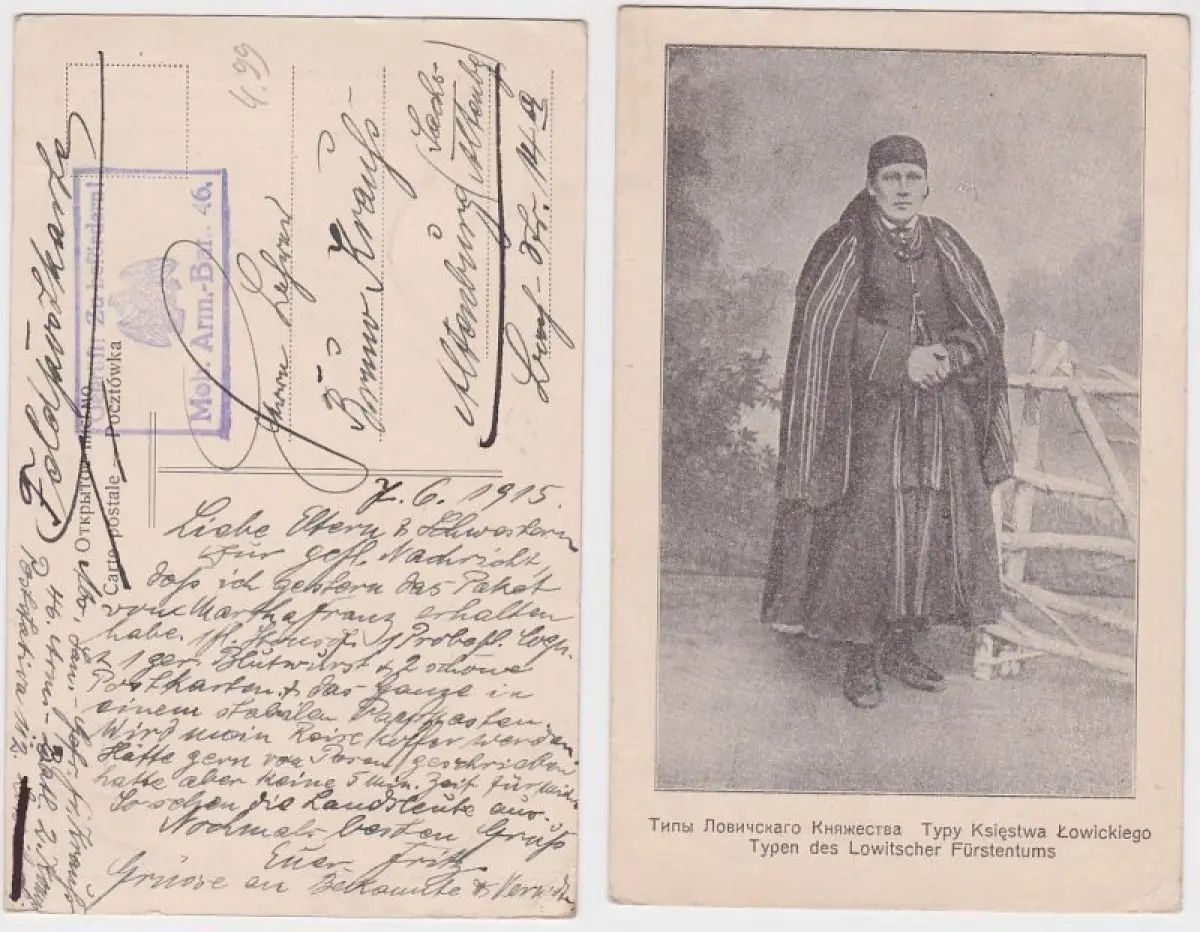 4.99
Feldpostkarte
Открытое письмо
Carte postale – Pocztówka
Geprüft! Zu befördern!
Mob. Arm.-Bat. 46.
Herrn Lehrer
Bruno Krauß
Altenburg Sachs-
Altenbg
7.6.1915.
Liebe Eltern & Schwestern
Für gefl. Nachricht,
daß ich gestern das Paket
von Martha franz erhalten
habe. 1 Probefl. Cogn.
1 ger. Blutwurst & 2 schöne
Postkarten & das ganze in
einem stabilen
Wird mein Reisekoffer werden
Hätte gern von Posen geschrieben
hatte aber keine 5 Min. Zeit für mich
So sehen die Landsleute aus.
Nochmals besten Gruß
Euer Fritz
Grüsse an Bekannte & Verwdte.
Типы Ловичскаго Княжества Typy Księstwa Łowickiego
Typen des Lowitscher Fürstentums